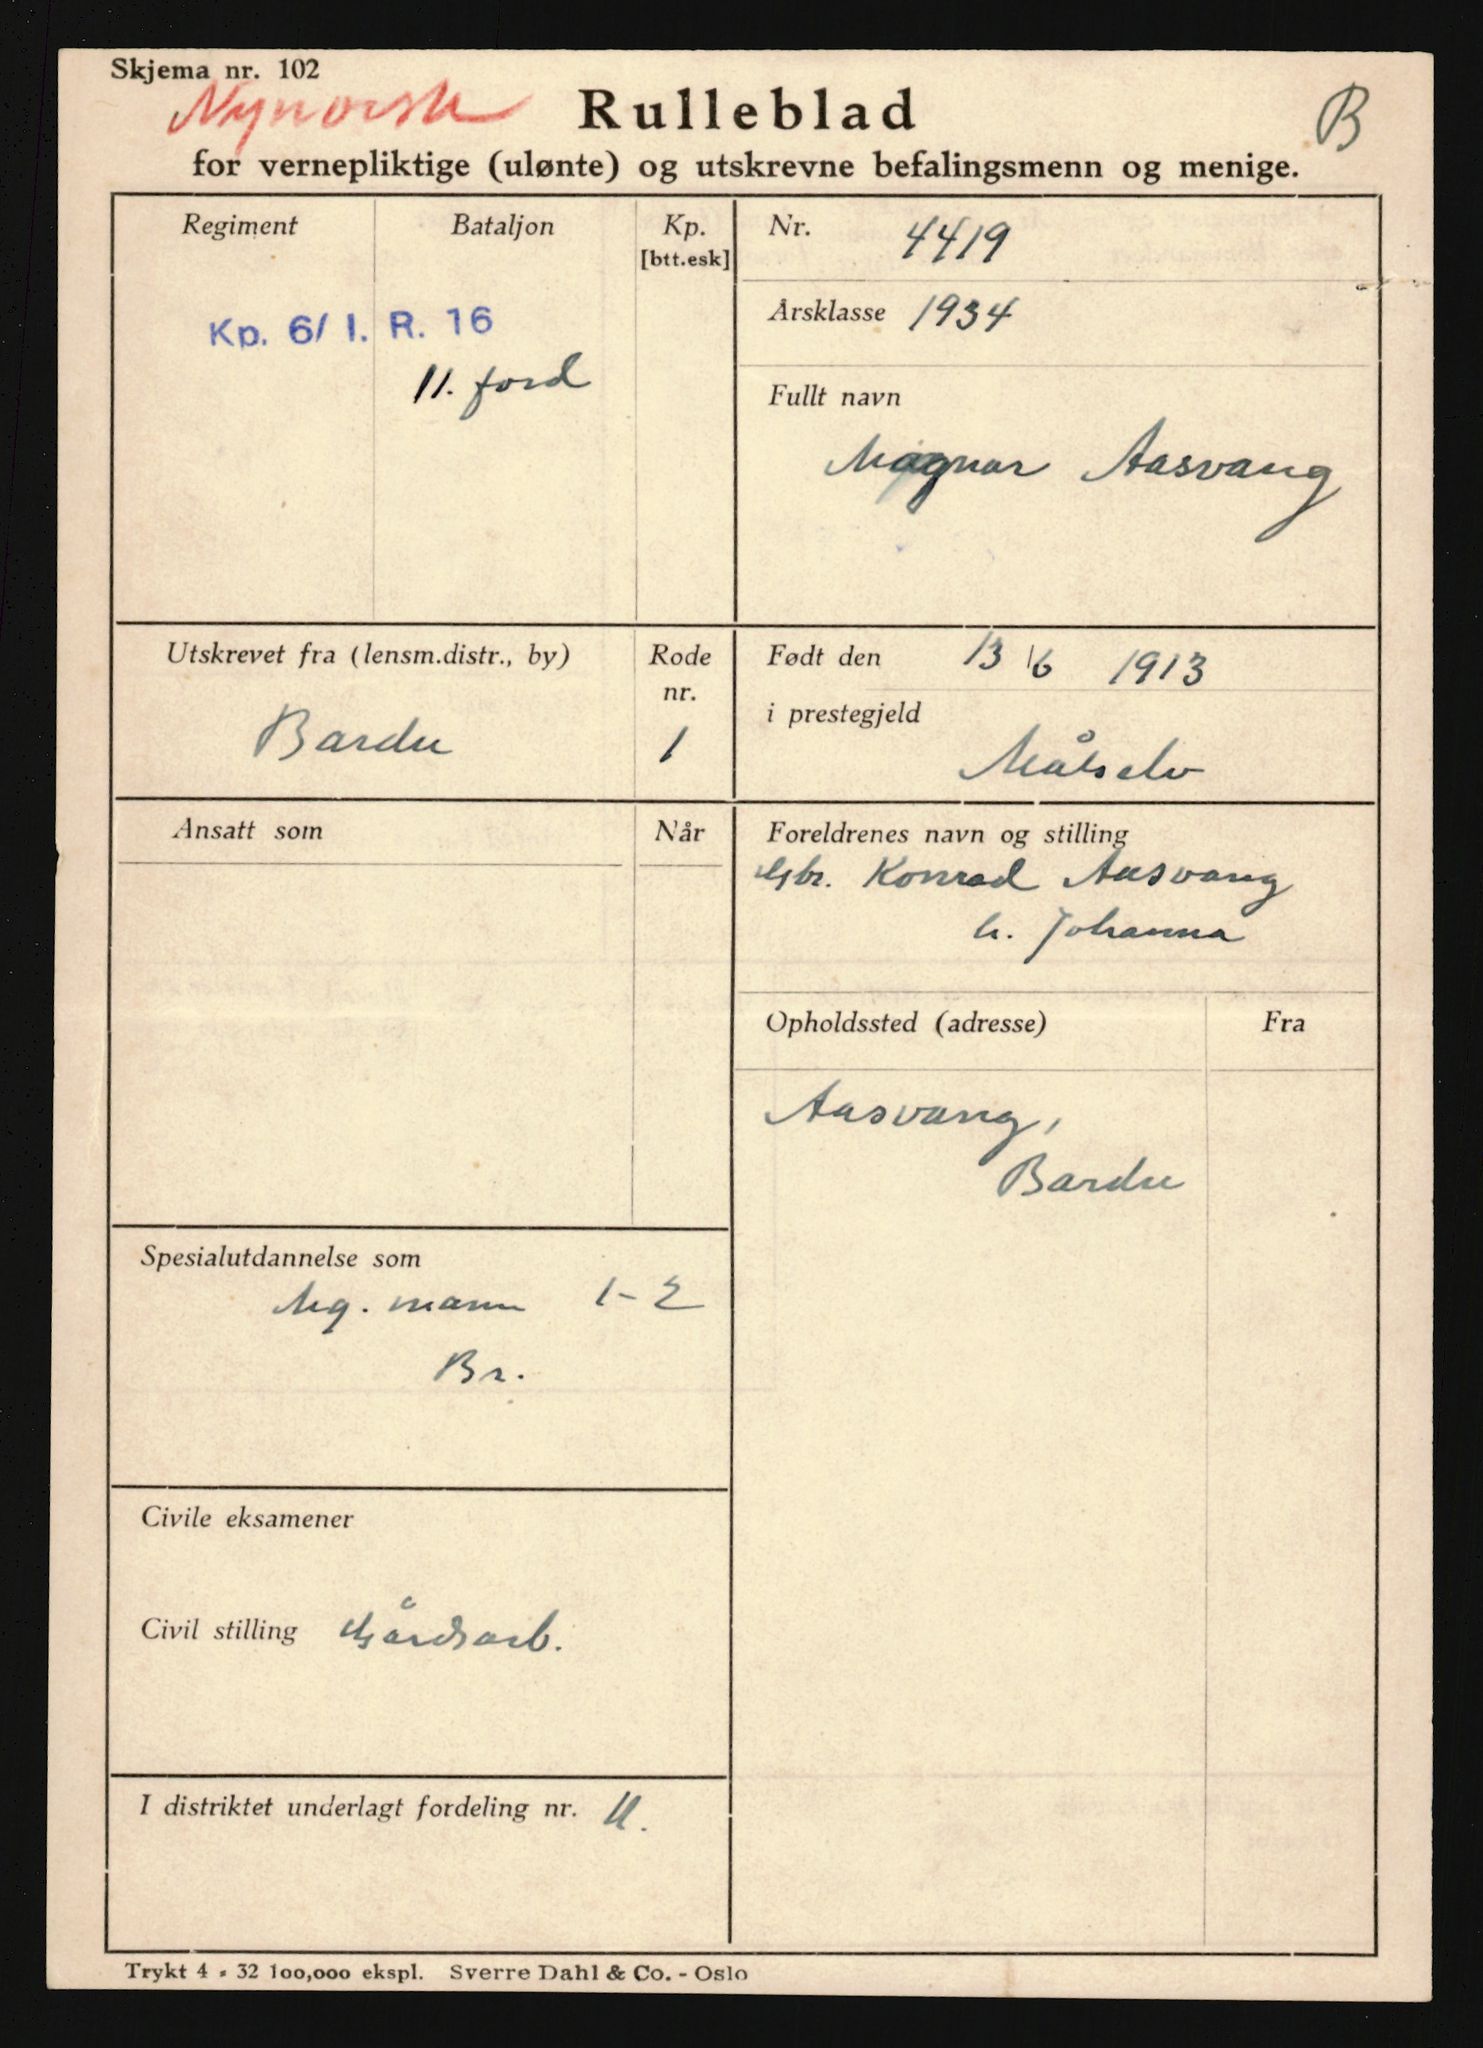 Skjema nr. 102
Nynorsk
Rulleblad
B
for vernepliktige (ulønte) og utskrevne befalingsmenn og menige.
Regiment
Bataljon
Kp.
[btt.esk]
Kp. 6/ I. R. 16
11. ford
Nr. 4419
Årsklasse 1934
Fullt navn
Magnar Aasvang
Utskrevet fra (lensm.distr., by)
Rode
nr.
Bardu
1
Født den 13/6 1913
i prestegjeld
Målselv
Ansatt som
Når
Foreldrenes navn og stilling
Gbr. Konrad Aasvang
h. Johanna
Opholdssted (adresse)
Fra
Aasvang,
Bardu
Spesialutdannelse som
Mg. mann 1-2
Br.
Civile eksamener
Civil stilling Gårdsarb.
I distriktet underlagt fordeling nr. 11.
Trykt 4 - 32 100,000 ekspl. Sverre Dahl & Co. - Oslo